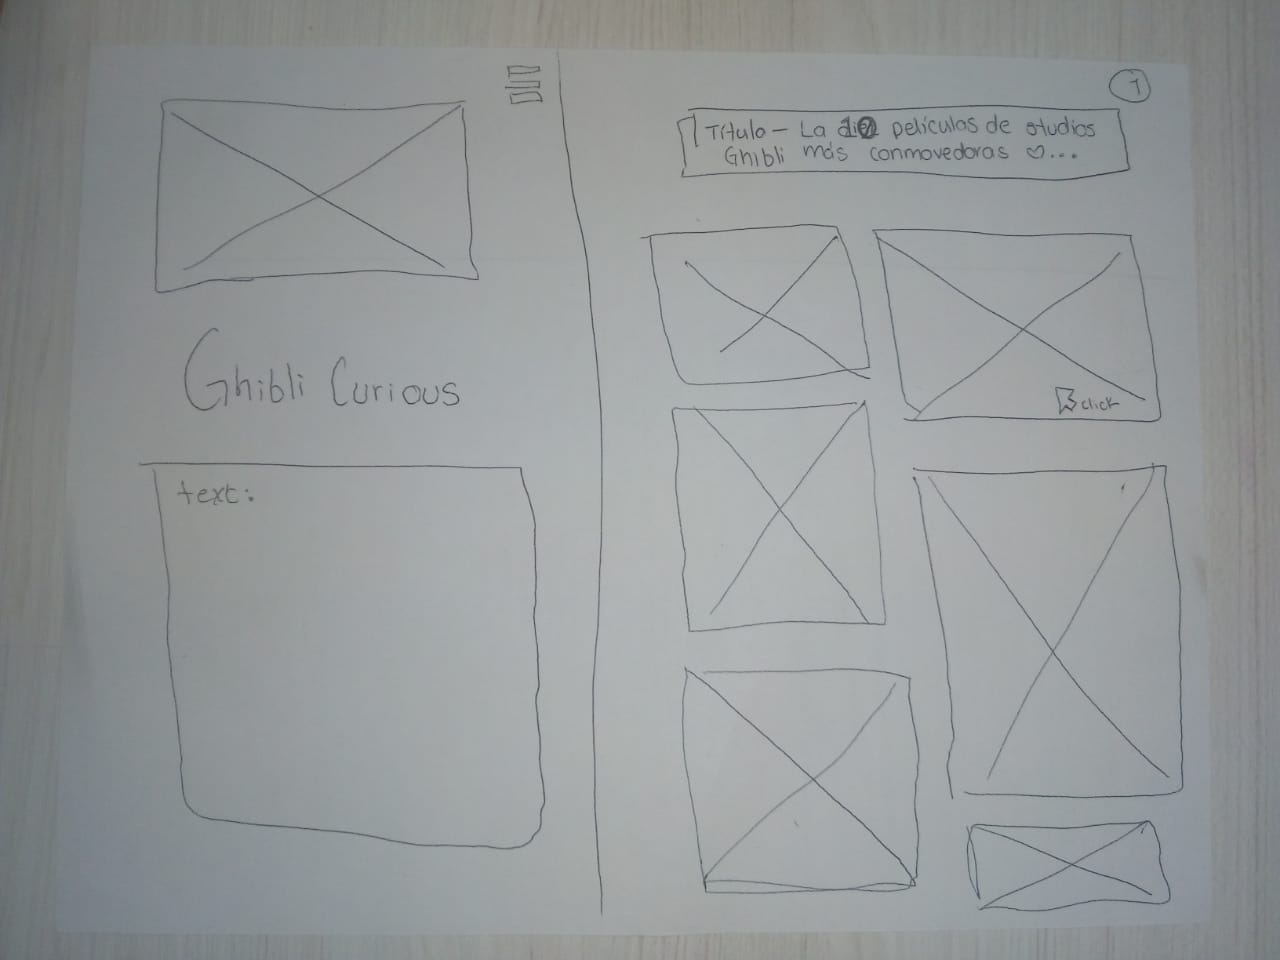 Ghibli Curious
text:
1
Título - La 10 películas de studios
Ghibli más conmovedoras ♡...
click